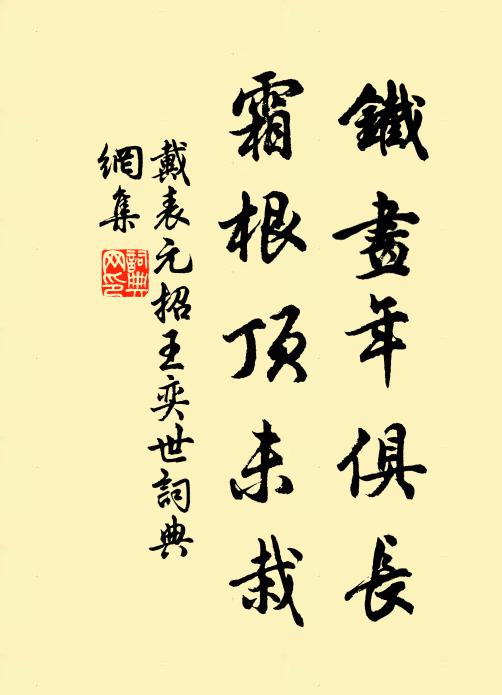 鐵畫年俱長
霜根頂未栽
戴表元招王奕世詞典
網集
詞典
网印